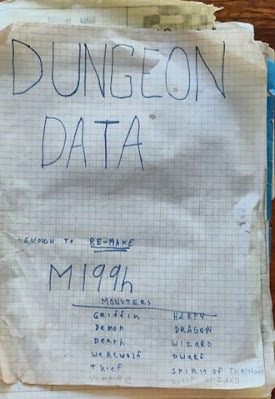 DUNGEON
DATA
ENOUGH TO RE-MAKE
M199h
MONSTERS
Griffin HARPY
Demon DRAGON
Death WIZARD
Werewolf Dwarf
Thief Spirit of Christmas